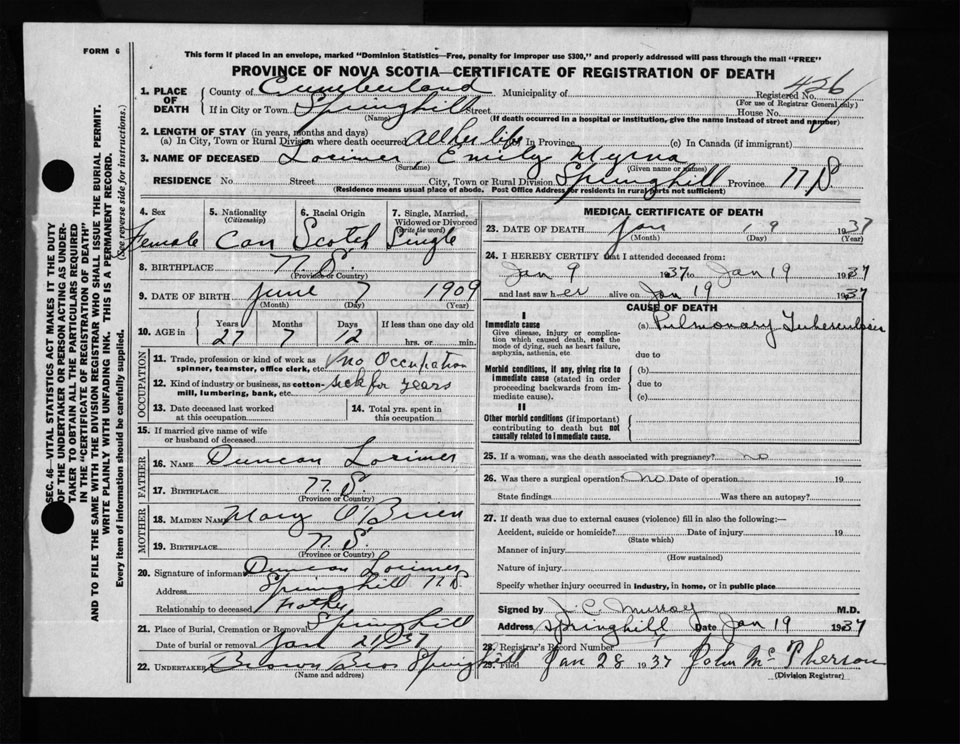 FORM 6
This form if placed in an envelope, marked "Dominion Statistics—Free, penalty for improper use $300," and properly addressed will pass through the mail "FREE"
PROVINCE OF NOVA SCOTIA—CERTIFICATE OF REGISTRATION OF DEATH
1. PLACE OF DEATH County of Cumberland Municipality of Registered No. 426
(For use of Registrar General only)
If in City or Town Springhill Street House No.
(Name) (If death occurred in a hospital or institution, give the name instead of street and number)
2. LENGTH OF STAY (in years, months and days)
(a) In City, Town or Rural Division where death occurred All her life (b) In Province (c) In Canada (if immigrant)
3. NAME OF DECEASED Lorimer, Emily Myrna
(Surname) (Given name or names)
RESIDENCE No. Street City, Town or Rural Division Springhill Province N S.
(Residence means usual place of abode. Post Office Address for residents in rural parts not sufficient)
SEC. 46—VITAL STATISTICS ACT MAKES IT THE DUTY
OF THE UNDERTAKER OR PERSON ACTING AS UNDER-
TAKER TO OBTAIN ALL THE PARTICULARS REQUIRED
IN THE "CERTIFICATE OF REGISTRATION OF DEATH"
AND TO FILE THE SAME WITH THE DIVISION REGISTRAR WHO SHALL ISSUE THE BURIAL PERMIT.
WRITE PLAINLY WITH UNFADING INK. THIS IS A PERMANENT RECORD.
Every item of information should be carefully supplied. (See reverse side for instructions.)
4. Sex Female
5. Nationality (Citizenship) Can
6. Racial Origin Scotch
7. Single, Married, Widowed or Divorced (write the word) Single
8. BIRTHPLACE N. S.
(Province or Country)
9. DATE OF BIRTH June 7 1909
(Month) (Day) (Year)
10. AGE in Years Months Days If less than one day old
27 7 12 hrs. or min.
OCCUPATION
11. Trade, profession or kind of work as spinner, teamster, office clerk, etc. No Occupation
12. Kind of industry or business, as cotton-mill, lumbering, bank, etc. sick for years
13. Date deceased last worked at this occupation
14. Total yrs. spent in this occupation
15. If married give name of wife or husband of deceased
FATHER
16. NAME Duncan Lorimer
17. BIRTHPLACE N. S.
(Province or Country)
MOTHER
18. MAIDEN NAME Mary O'Brien
19. BIRTHPLACE N. S.
(Province or Country)
20. Signature of informant Duncan Lorimer
Address Springhill N.S
Relationship to deceased Father
21. Place of Burial, Cremation or Removal Springhill
Date of burial or removal Jan 21 1937
22. UNDERTAKER Brown Bros Springhill
(Name and address)
MEDICAL CERTIFICATE OF DEATH
23. DATE OF DEATH Jan 19 1937
(Month) (Day) (Year)
24. I HEREBY CERTIFY that I attended deceased from:
Jan 9 1937 to Jan 19 1937
and last saw her alive on Jan 19 1937
CAUSE OF DEATH
I
Immediate cause (a) Pulmonary Tuberculosis
Give disease, injury or complication which caused death, not the mode of dying, such as heart failure, asphyxia, asthenia, etc due to
Morbid conditions, if any, giving rise to immediate cause (stated in order proceeding backwards from immediate cause). (b)
due to
(c)
II
Other morbid conditions (if important) contributing to death but not causally related to immediate cause.
25. If a woman, was the death associated with pregnancy? no
26. Was there a surgical operation? No Date of operation 19
State findings Was there an autopsy?
27. If death was due to external causes (violence) fill in also the following:—
Accident, suicide or homicide? Date of injury 19
(State which)
Manner of injury
(How sustained)
Nature of injury
Specify whether injury occurred in industry, in home, or in public place
Signed by J. C. Murray M.D.
Address Springhill Date Jan 19 1937
28. Registrar's Record Number
29. Filed Jan 28 1937 John McPherson
(Division Registrar)